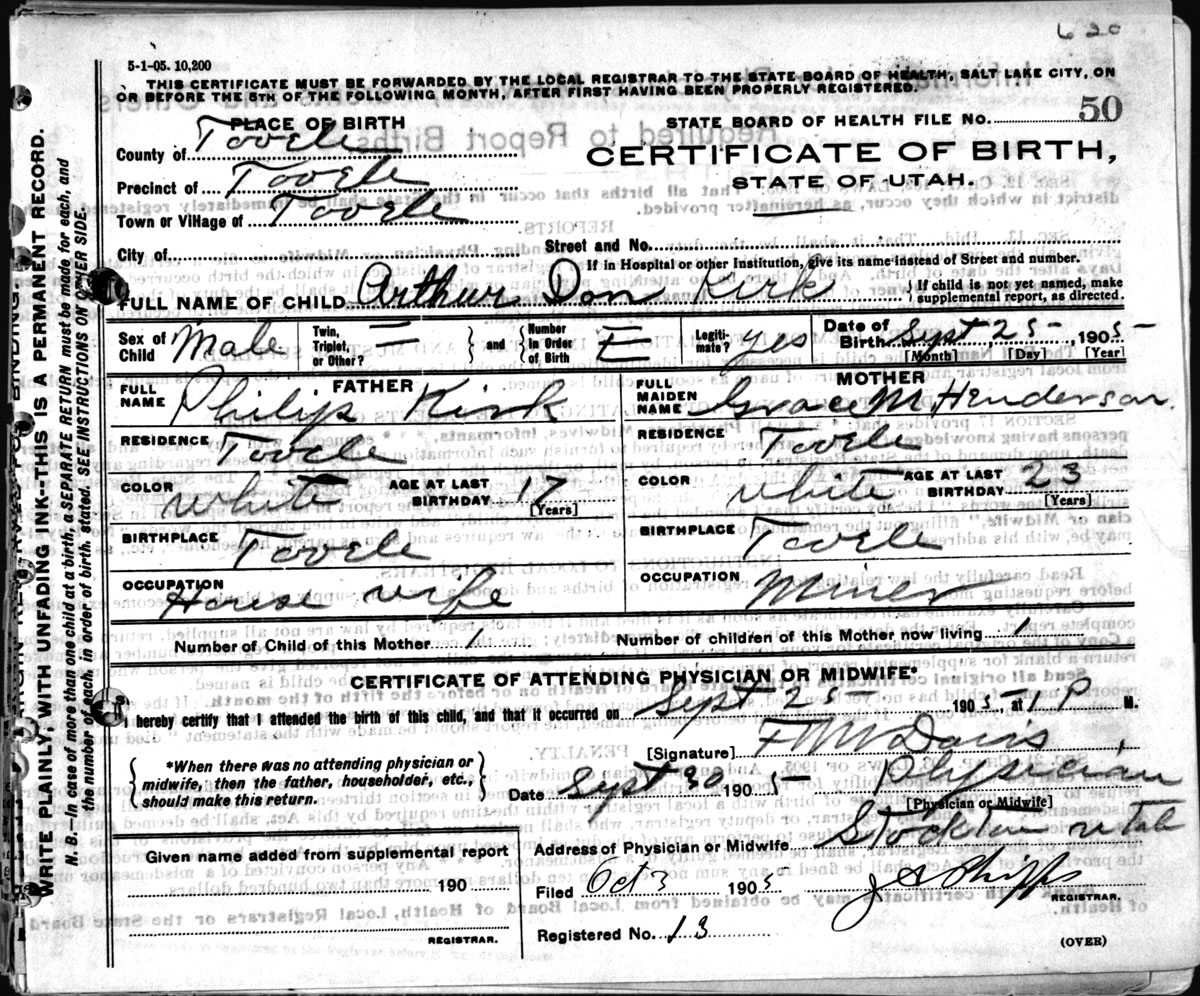 620
5-1-05. 10,200
THIS CERTIFICATE MUST BE FORWARDED BY THE LOCAL REGISTRAR TO THE STATE BOARD OF HEALTH, SALT LAKE CITY, ON
OR BEFORE THE 5TH OF THE FOLLOWING MONTH, AFTER FIRST HAVING BEEN PROPERLY REGISTERED.
PLACE OF BIRTH
STATE BOARD OF HEALTH FILE NO. 50
County of Tooele
CERTIFICATE OF BIRTH,
Precinct of Tooele
STATE OF UTAH.
Town or Village of Tooele
City of
Street and No.
If in Hospital or other Institution, give its name instead of Street and number.
FULL NAME OF CHILD Arthur Don Kirk
If child is not yet named, make supplemental report, as directed.
Sex of Child Male
Twin, Triplet, or Other? =
and
Number in Order of Birth
Legitimate? yes
Date of Birth Sept 25 1905
[Month] [Day] [Year]
FATHER
FULL NAME Philip Kirk
MOTHER
FULL MAIDEN NAME Grace M. Henderson
RESIDENCE Tooele
RESIDENCE Tooele
COLOR White
AGE AT LAST BIRTHDAY 17 [Years]
COLOR White
AGE AT LAST BIRTHDAY 23 [Years]
BIRTHPLACE Tooele
BIRTHPLACE Tooele
OCCUPATION House wife
OCCUPATION Miner
Number of Child of this Mother 1
Number of children of this Mother now living 1
CERTIFICATE OF ATTENDING PHYSICIAN OR MIDWIFE.*
I hereby certify that I attended the birth of this child, and that it occurred on Sept 25 1905, at 1 P M.
*When there was no attending physician or midwife, then the father, householder, etc., should make this return.
[Signature] F M Davis
Date Sept 30 1905 Physician
[Physician or Midwife]
Address of Physician or Midwife Stockton Utah
Given name added from supplemental report
190
REGISTRAR.
Filed Oct 3 1905 J A Shipp
REGISTRAR.
Registered No. 13
(OVER)
WRITE PLAINLY, WITH UNFADING INK--THIS IS A PERMANENT RECORD.
N. B. In case of more than one child at a birth, a SEPARATE RETURN must be made for each, and
the number of each, in order of birth, stated. SEE INSTRUCTIONS ON OTHER SIDE.